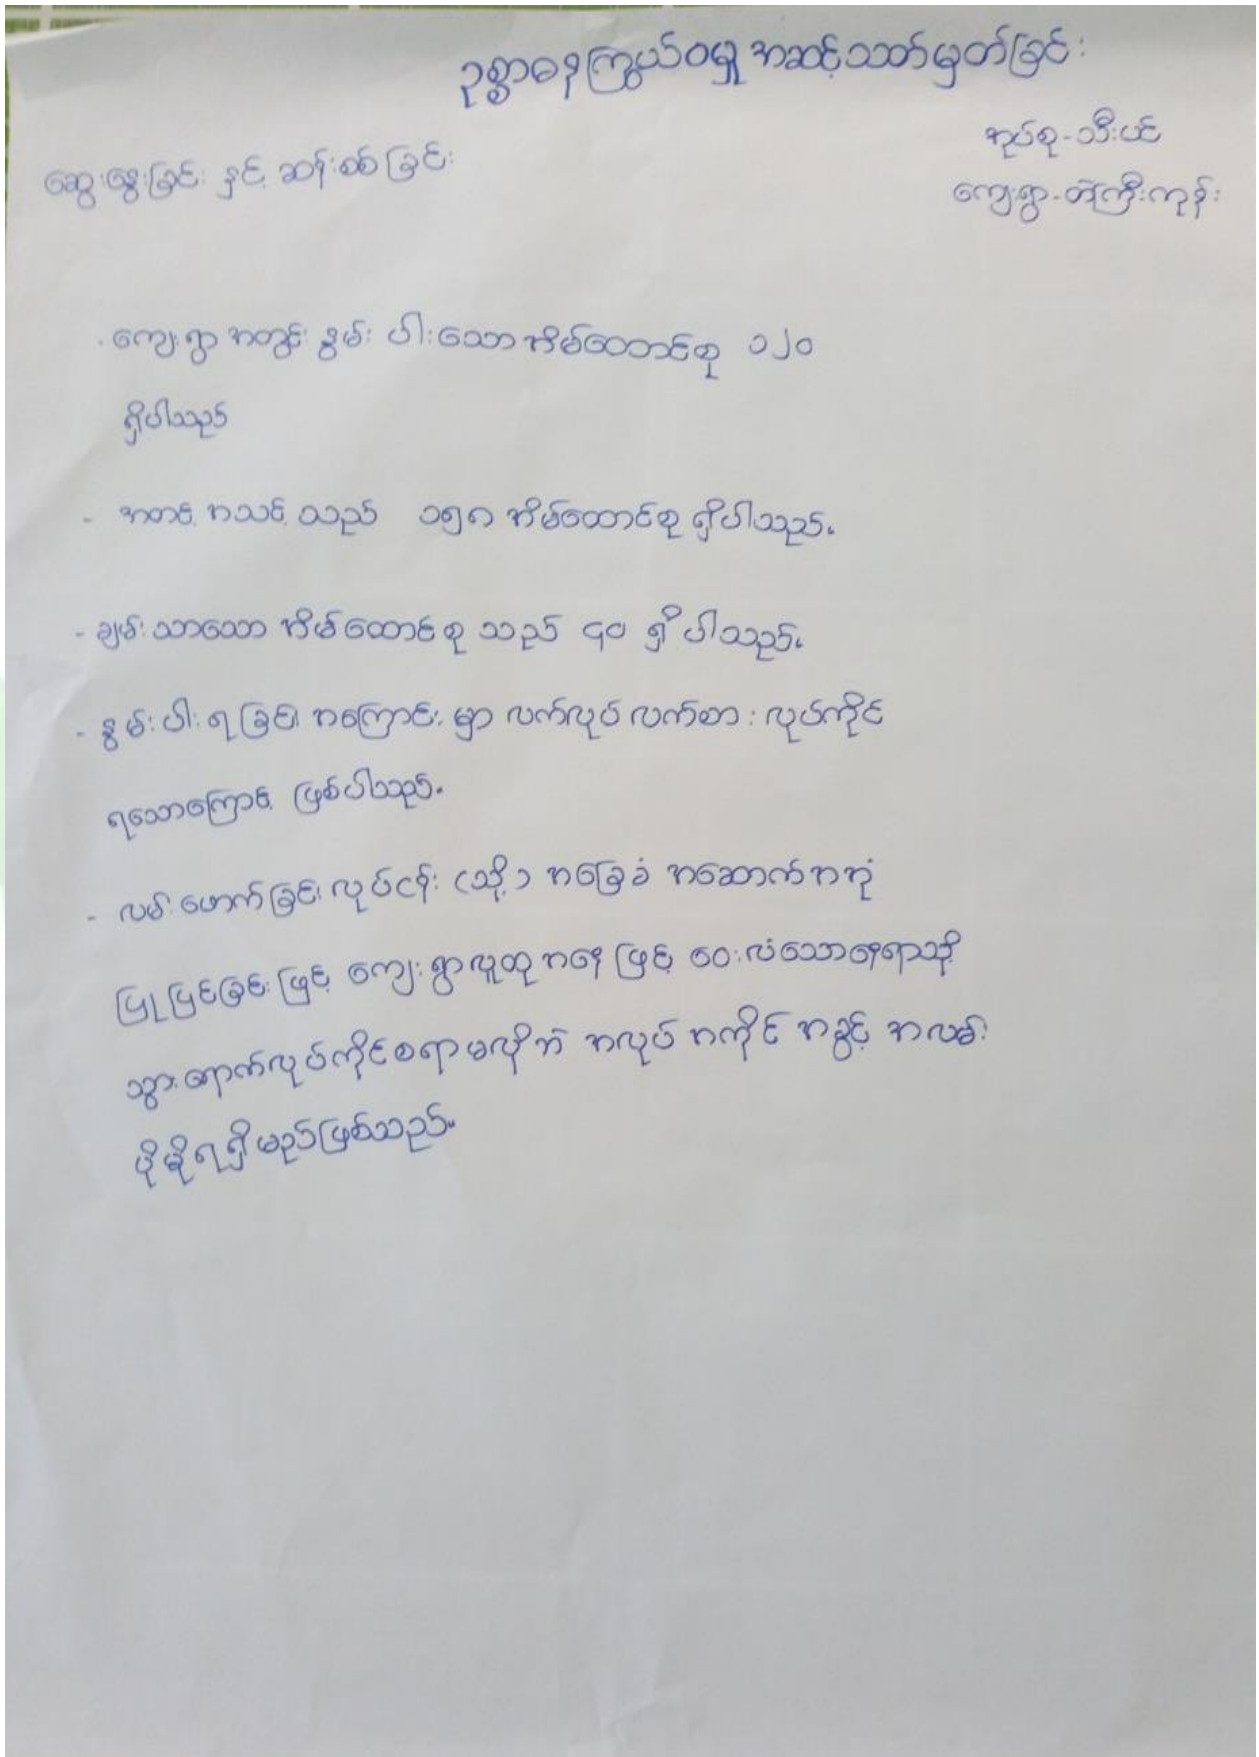 ဥစ္စာဓနကြွယ်ဝမှု အဆင့်သတ်မှတ်ခြင်း
အုပ်စု-သီးပင်
ဆွေးနွေးခြင်း နှင့် ဆန်းစစ်ခြင်း
ကျေးရွာ-တဲကြီးကုန်း
. ကျေးရွာ အတွင်း နွမ်း ပါးသော အိမ်ထောင်စု ၁၂၀
ရှိပါသည်
- အတင့် အသင့် သည် ၁၅၈ အိမ်ထောင်စု ရှိပါသည်။
- ချမ်းသာသော အိမ်ထောင်စု သည် ၄၀ ရှိ ပါသည်။
- နွမ်း ပါး ရ ခြင်း အကြောင်း မှာ လက်လုပ် လက်စား လုပ်ကိုင်
ရသောကြောင့် ဖြစ်ပါသည်။
- လမ်း ဖောက်ခြင်း လုပ်ငန်း (သို့) အခြေခံ အဆောက်အအုံ
ပြုပြင်ခြင်း ဖြင့် ကျေးရွာလူထု အနေ ဖြင့် ဝေးလံသောနေရာသို့
သွားရောက်လုပ်ကိုင်စရာမလိုဘဲ အလုပ် အကိုင် အခွင့် အလမ်း
ပိုမိုရရှိ မည်ဖြစ်သည်။